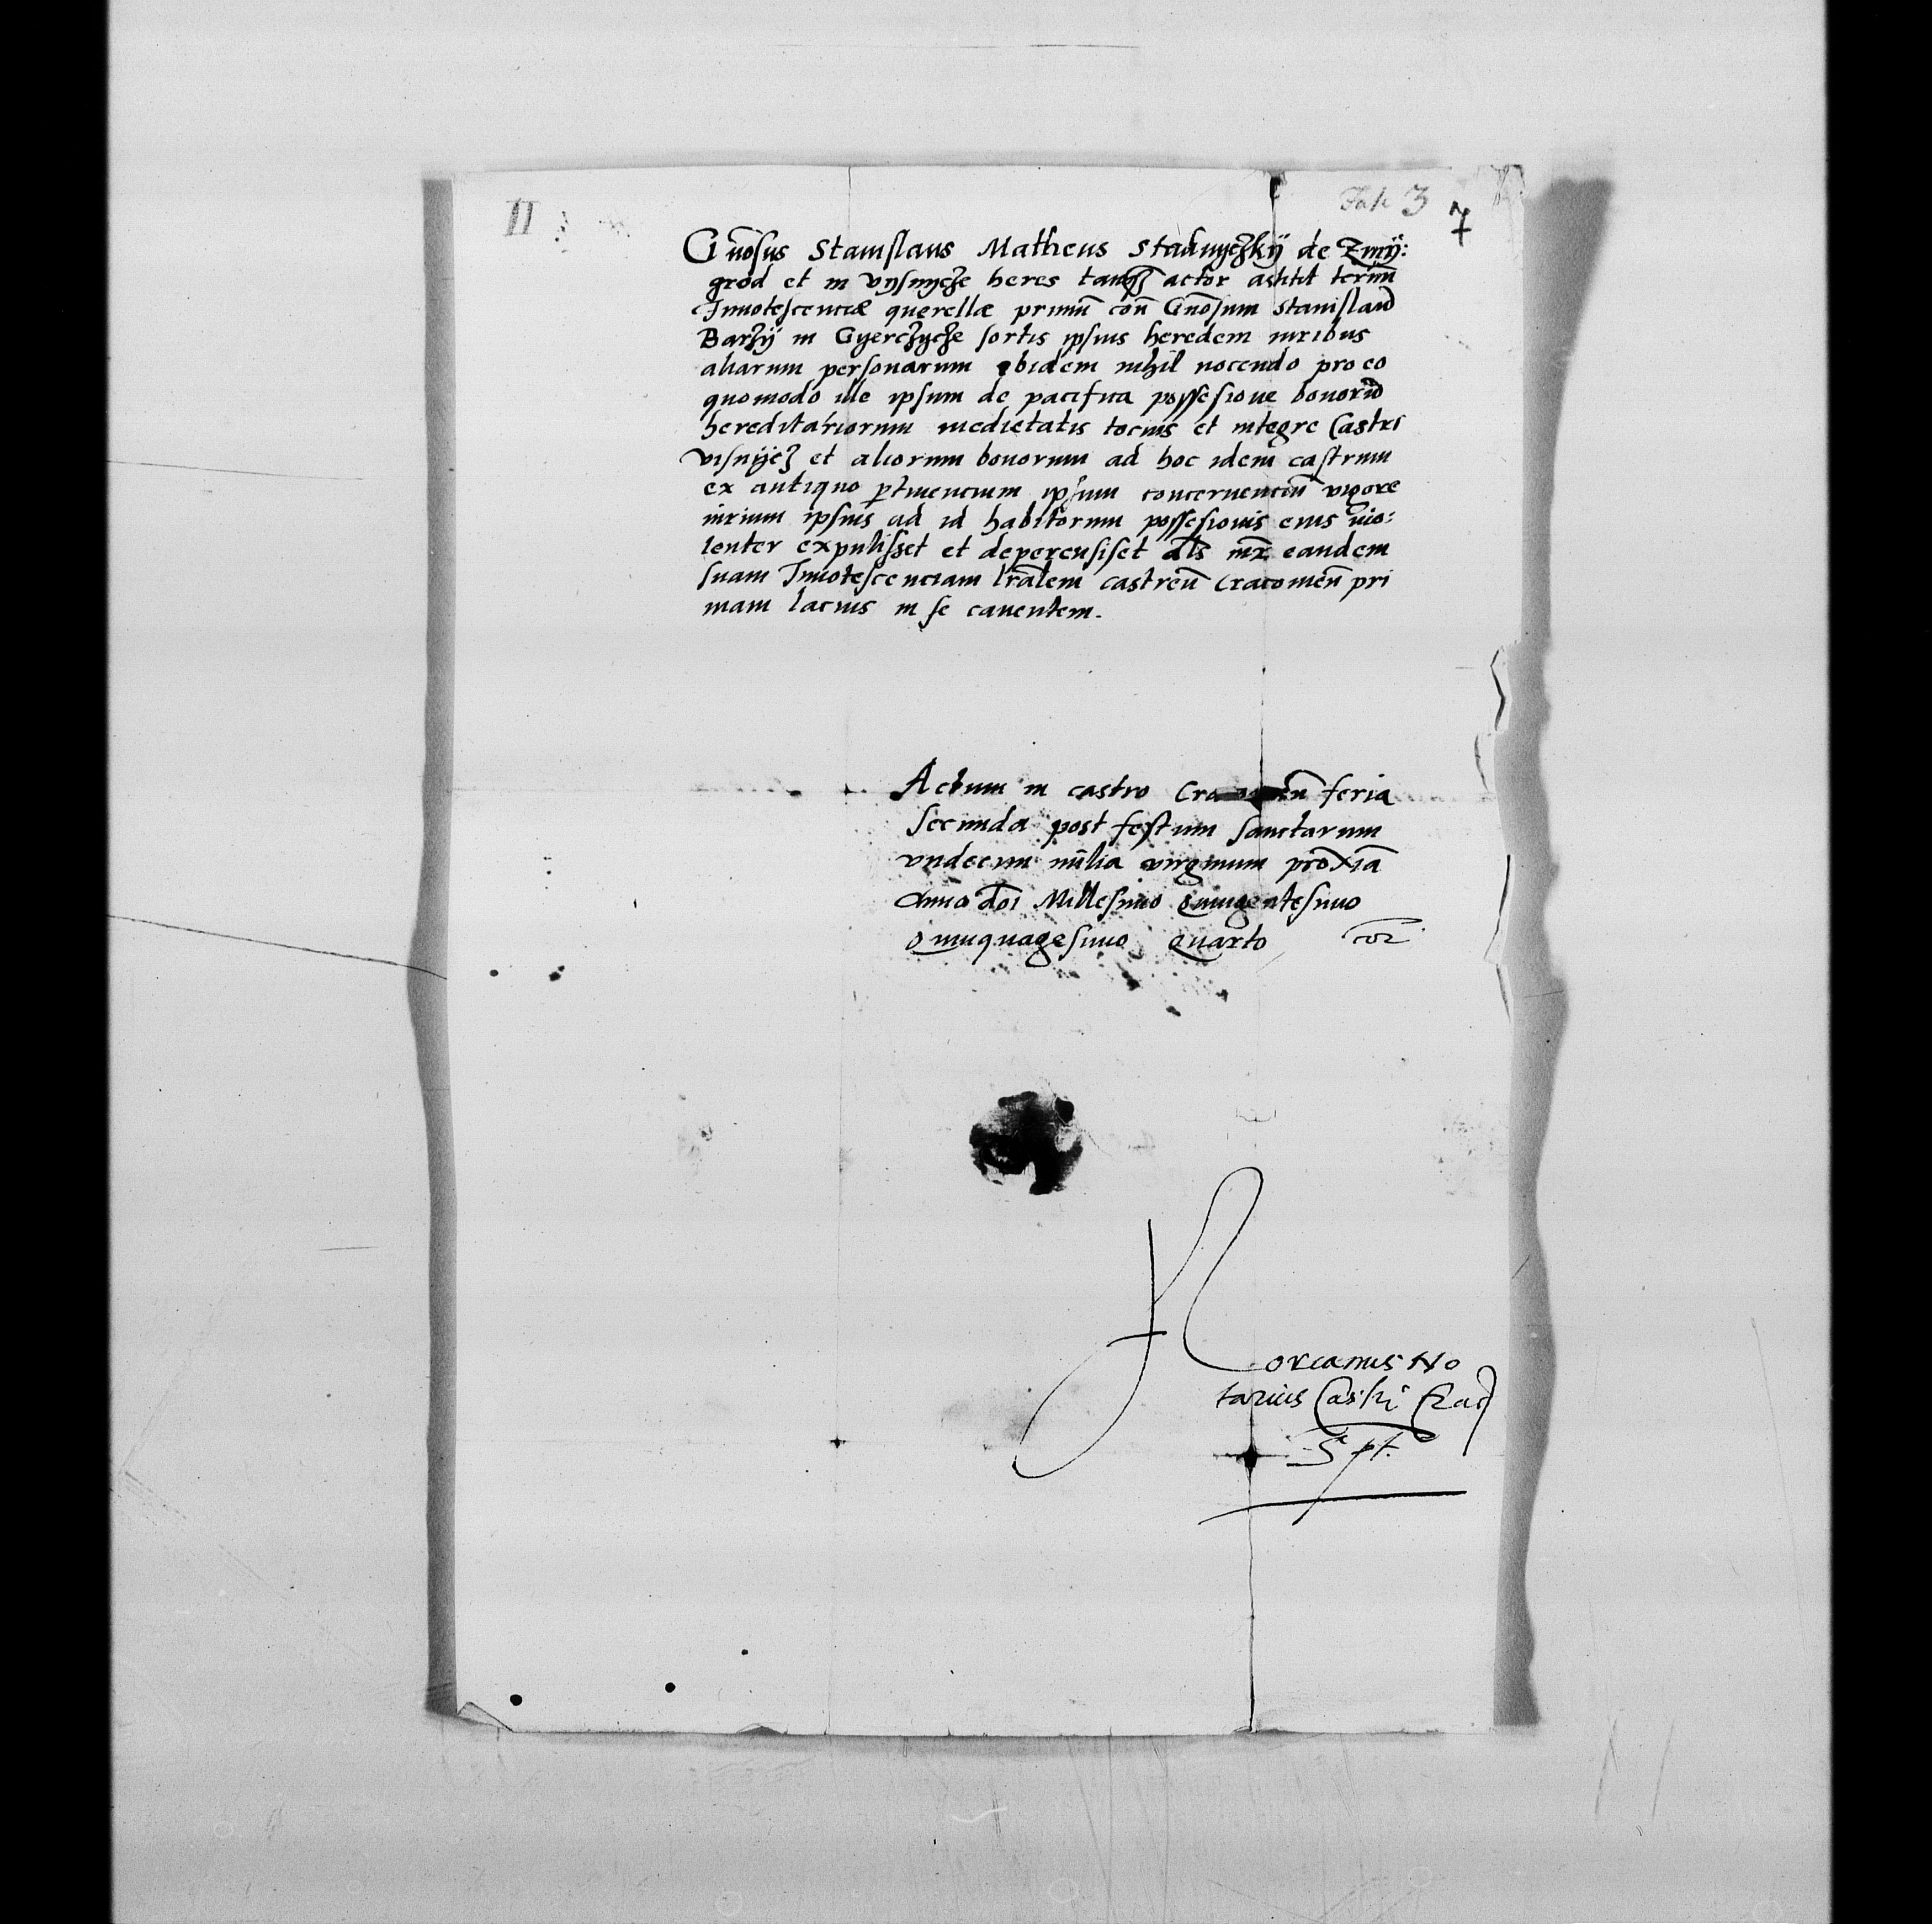 II
Fas 3 7
Gnōsus Stanislaus Matheus Stadnyczkÿ de Zmÿ:
grod et in vysnycze heres tanq̄ȝ actor astitit termū
Innotescenciæ querellæ primū con̄ Gnōsum Stanislaū
Barzÿ in Gyerczycze sortis ipsius heredem iuribus
aliarum personarum ibidem nihil nocendo pro eo
quomodo ille ipsum de pacifica possesione bonorū
hereditariorum medietatis tocius et integre Castri
visnÿcz et aliorum bonorum ad hoc idem castrum
ex antiquo ꝑtinencium ipsum concernenciū vigore
iurium ipsius ad id habitorum possesionis eius vio:
lenter expulisset et depercusiset al̄s iux̄ eandem
suam Innotescenciam lr̄alem castren̄ Cracouien̄ pri
mam lacius in se cauentem.
Actum in castro Cra en̄ feria
secunda post festum sanctarum
vndecim milia virginum proxiā
Anno dōi Millesimo Quingentesimo
Quinquagesimo Quarto cor̄
orcanus No
tarius Castri Crac
Spt.